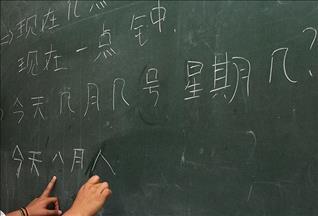 ⇒现在几
现在一点钟.
今天几月几号星期几?
今天八月八